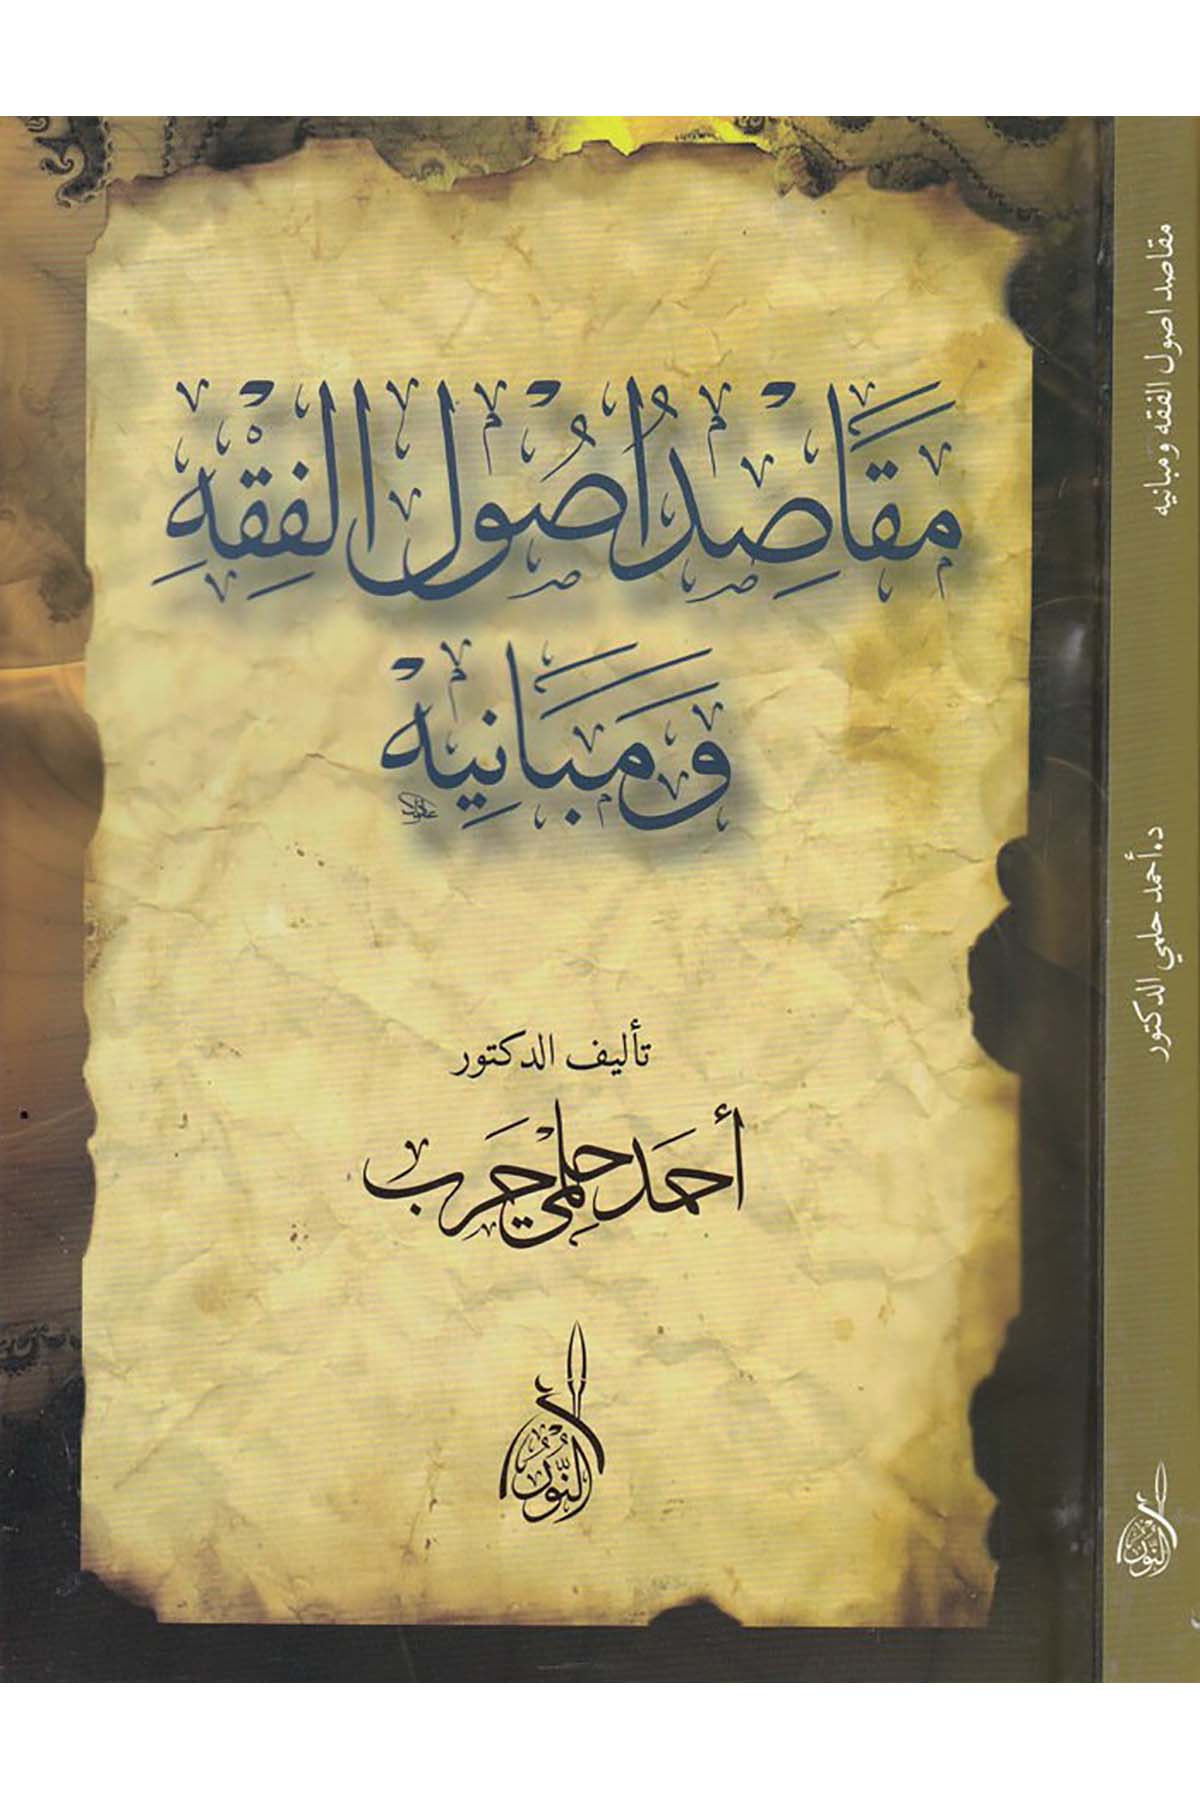 مَقَاصِدُ اُصُول الفِقْهِ
وَمَبَانِيهْ
تأليف الدكتور
أحمَد حِلمْي حَرب
النُّورُ
مقاصد اصول الفقه ومبانيه
د.أحمد حلمي الدكتور
النُّورُ